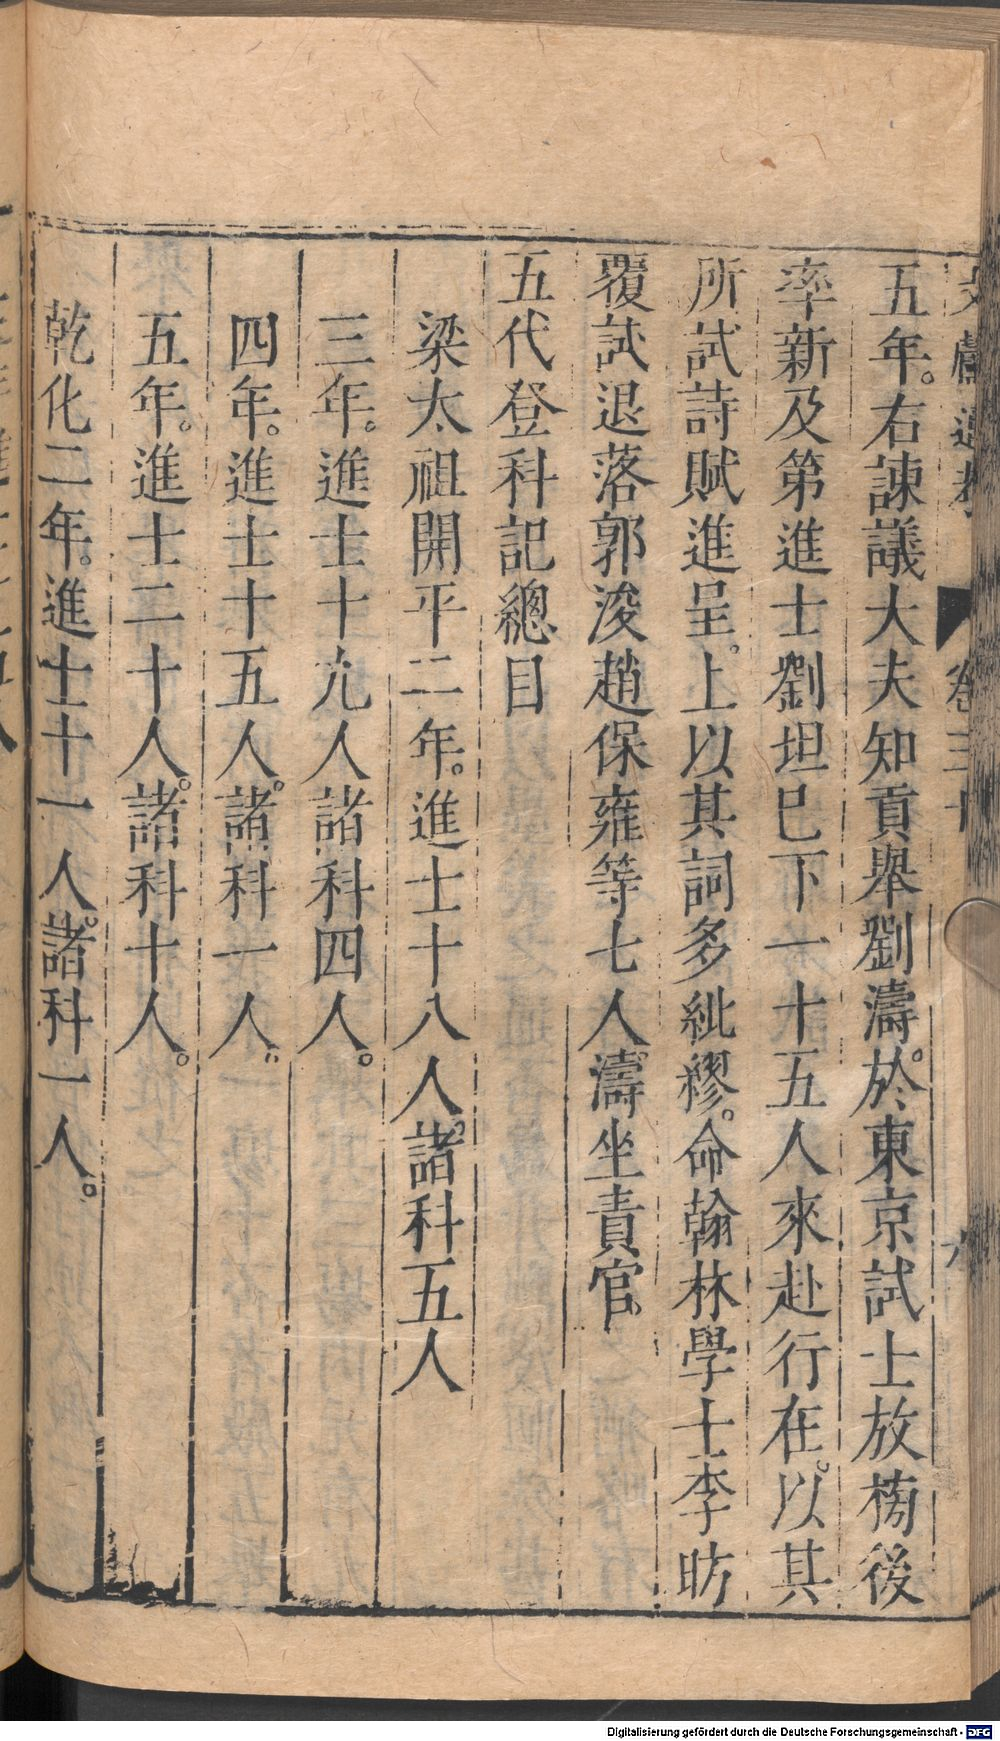 文獻通考 卷三十 六
五年。右諫議大夫知貢舉劉濤。於東京試士放榜後
率新及第進士劉坦已下一十五人來赴行在。以其
所試詩賦進呈。上以其詞多紕繆。命翰林學士李昉
覆試退落郭浚趙保雍等七人。濤坐責官
五代登科記總目
梁太祖開平二年。進士十八人。諸科五人
三年。進士十九人諸科四人。
四年。進士十五人。諸科一人。
五年。進士二十人。諸科十人。
乾化二年。進士十一人。諸科一人。
Digitalisierung gefördert durch die Deutsche Forschungsgemeinschaft - DFG